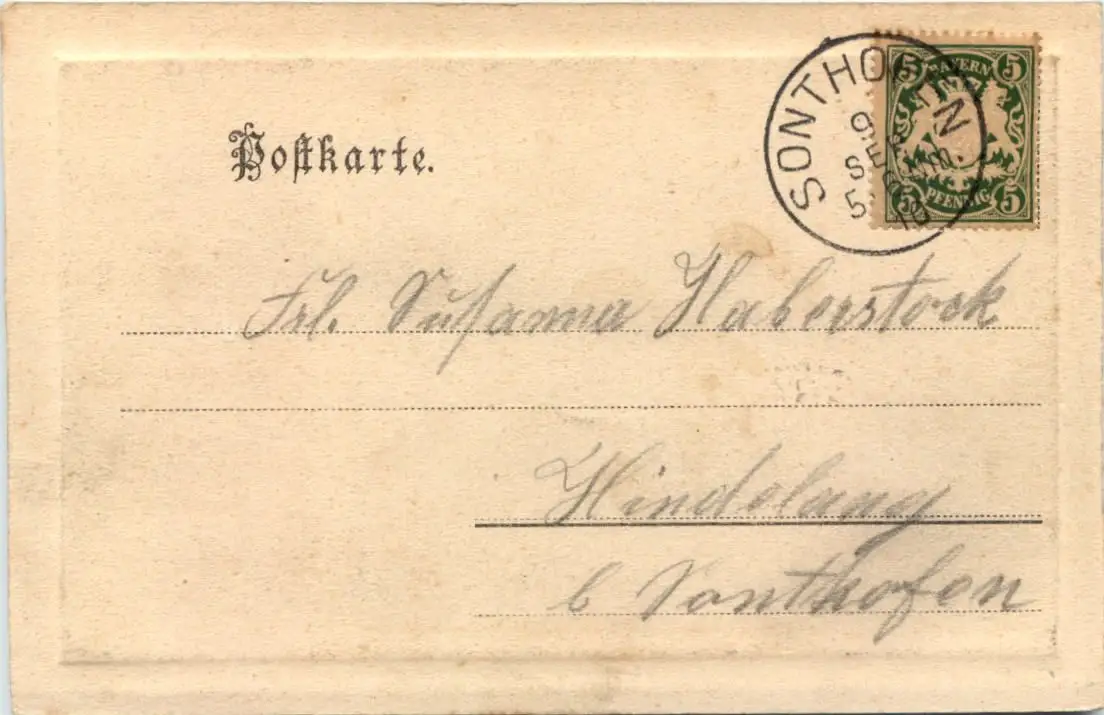 Postkarte.
SONTHOFEN
9
SEP
5
5 BAYERN 5
5 PFENNIG 5
Frl. Susanna Haberstock
Hindelang
b Sonthofen